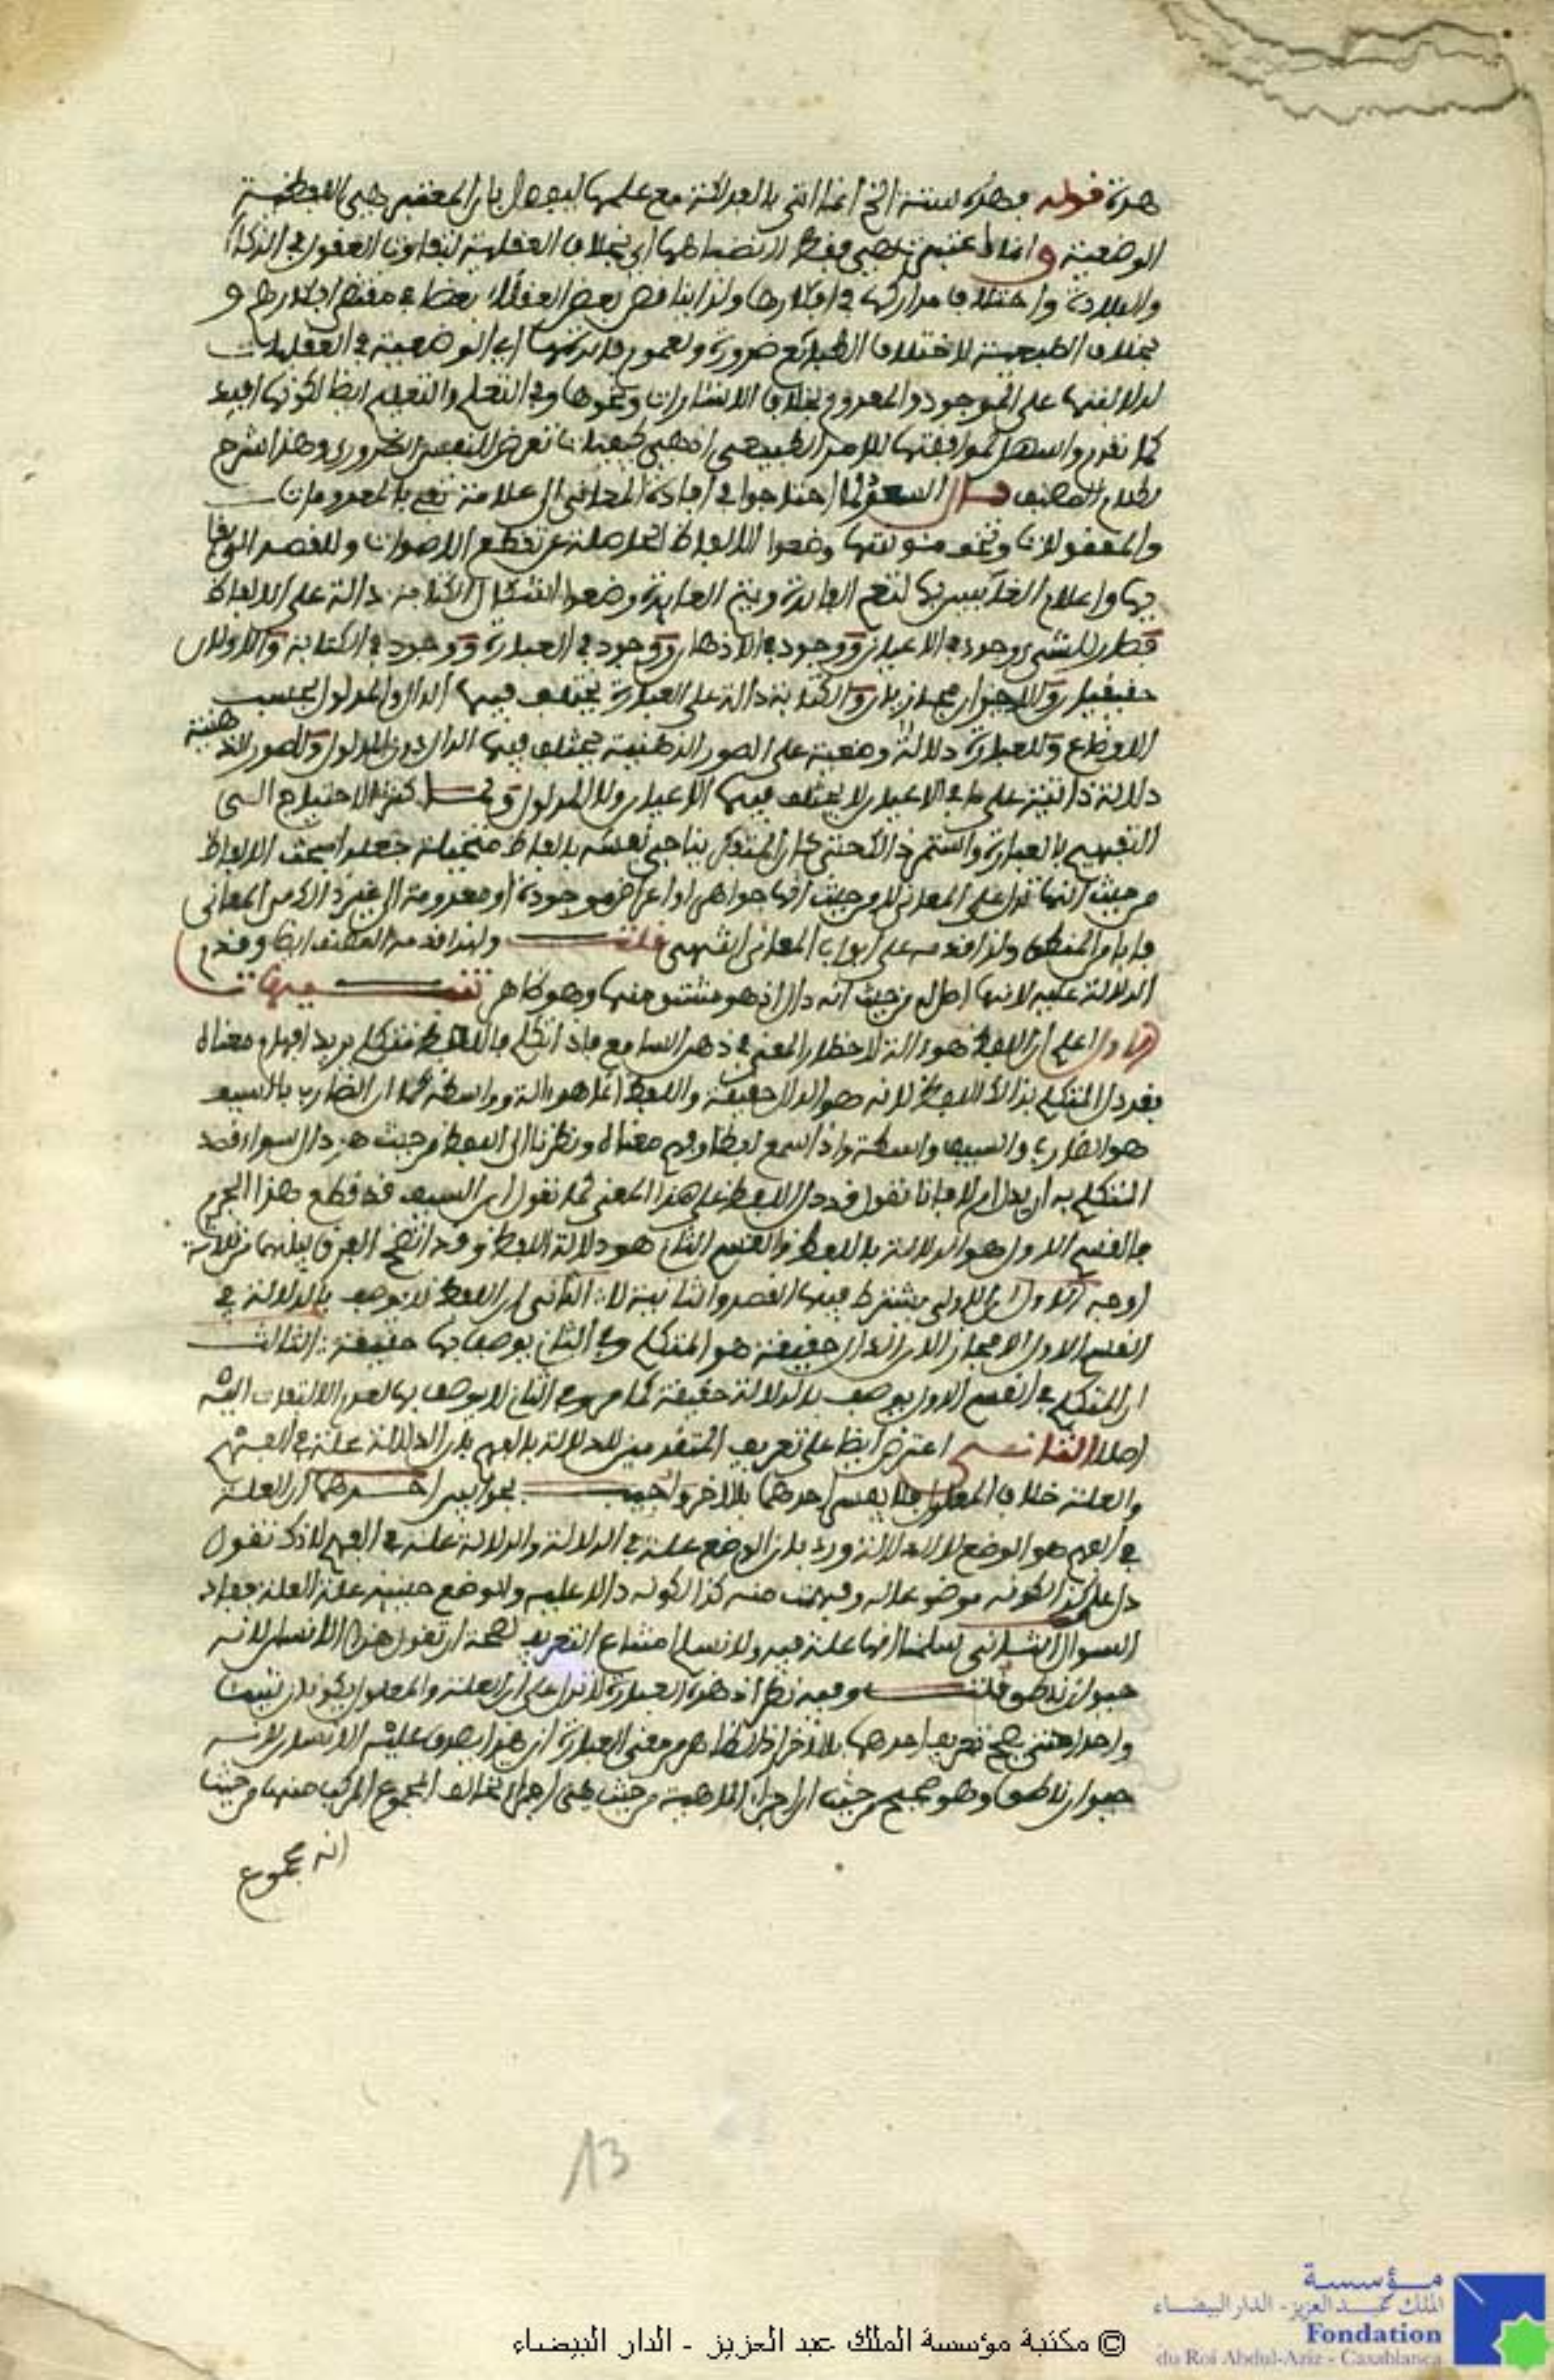 هذه قوله وهذه ستة الخ انما اتى بالفذلكة مع علمها ليقول بان المعتبر هي اللفظية
الوضعية وانما اعتبر هي فقط لانضباطها اي بخلاف العقلية لتفاوت العقول في الذكاء
والبلادة واختلاف مداركها في افكارها ولذا يناقض بعض العقلاء بعضا في مقتضى افكارهم و
بخلاف الطبيعية لاختلاف الطبائع ضرورة ولعموم فائدتها اي الوضعية في العقليات
لدلالتها على الموجود والمعدوم بخلاف الاشارات ونحوها وفي التعلم والتعليم ايضا لكونها افيد
كما تقدم واسهل لموافقتها للامر الطبيعي اذ هي كيفيات تعرض للنفس الضروري وهذا شرح
كلام المصنف قال السعد لما احتاجوا في افادة المعاني الى علامة تفي بالمعدومات
والمعقولات وتخف مئونتها وضعوا الالفاظ الحاصلة عن تقطع الاصوات ولقصد البقاء
بها واعلام الغائبين بها لتعم الفائدة وتتم العائدة وضعوا اشكال الكتابة دالة على الالفاظ
فكان للشيء وجود في الاعيان ووجود في الاذهان ووجود في العبارة ووجود في الكتابة والاولان
حقيقيان والاخيران مجازيان والكتابة دالة على العبارة يختلف فيها الدال والمدلول بحسب
الاوضاع وللعبارة دلالة وضعية على الصور الذهنية يختلف فيها الدال دون المدلول وللصور الذهنية
دلالة ذاتية على ما في الاعيان لا يختلف فيها الدال ولا المدلول ولما كثر الاحتياج الى
التفهيم بالعبارة واستمر ذلك حتى كان المتفكر يناجي نفسه بالفاظ متخيلة جعلوا بحث الالفاظ
من حيث انها تدل على المعاني لا من حيث انها جواهر او اعراض موجودة او معدومة الى غير ذلك من المعاني
بابا من المنطق ولذا قدمه على ابواب المعاني انتهى قلت ولهذا قدمه المصنف ايضا وقدم
الدلالة عليه لانها اصل له من حيث انه دال اذ هو مشتق منها وهو ظاهر تنبيهات
الاول اعلم ان اللفظ هو ءالة لاحضار المعنى في ذهن السامع فاذا تكلم باللفظ متكلم يريد افهام معناه
فقد دل المتكلم بذلك اللفظ لانه هو الدال حقيقة واللفظ انما هو ءالة وواسطة كما ان الضارب بالسيف
هو الضارب والسيف واسطة واذا سمع لفظ وفهم معناه ونظرنا الى اللفظ من حيث هو دال سواء قصد
المتكلم به ان يدل ام لا فانا نقول قد دل اللفظ على هذا المعنى كما نقول ان السيف قد قطع هذا الجرم
فالقسم الاول هو الدلالة باللفظ والقسم الثاني هو دلالة اللفظ وقد اتضح الفرق بينهما من ثلاثة
اوجه الاول ان الاولى يشترط فيها القصد والثانية لا الثاني ان اللفظ لا يوصف بالدلالة في
القسم الاول الا مجازا لان الدال حقيقة هو المتكلم وفي الثاني يوصف بها حقيقة الثالث
ان المتكلم في القسم الاول يوصف بالدلالة حقيقة كما مر وفي الثاني لا يوصف بها لعدم الالتفات اليه
اصلا الثاني اعترض ايضا على تعريف المتقدمين للدلالة بالفهم بان الدلالة علة في الفهم
والعلة خلاف المعلول فلا يفسر احدهما بالاخر واجيب بجوابين احدهما ان العلة
في الفهم هو الوضع لا الدلالة ورد بان الوضع علة في الدلالة والدلالة علة في الفهم لانك تقول
دل على كذا لكونه موضوعا له وفهمت منه كذا لكونه دالا عليه والوضع حينئذ علة العلة فعاد
السوال الثاني سلمنا انها علة فيه ولا نسلم امتناع التعريف لصحة ان تقول هذا الانسان لانه
حيوان ناطق قلت وفيه نظر اذ هذه العبارة لا تدل على ان العلة والمعلول يكونان شيئا
واحدا حتى يصح تعريف احدهما بالاخر اذ الظاهر من معنى العبارة ان هذا يصدق عليه الانسان لانه
حيوان ناطق وهو صحيح من حيث ان اجزاء الماهية من حيث هي اجزاء تخالف المجموع المركب منها من حيث
انه مجموع
13
© مكتبة مؤسسة الملك عبد العزيز - الدار البيضاء
مؤسسة
الملك عبد العزيز - الدار البيضاء
Fondation
du Roi Abdul-Aziz - Casablanca